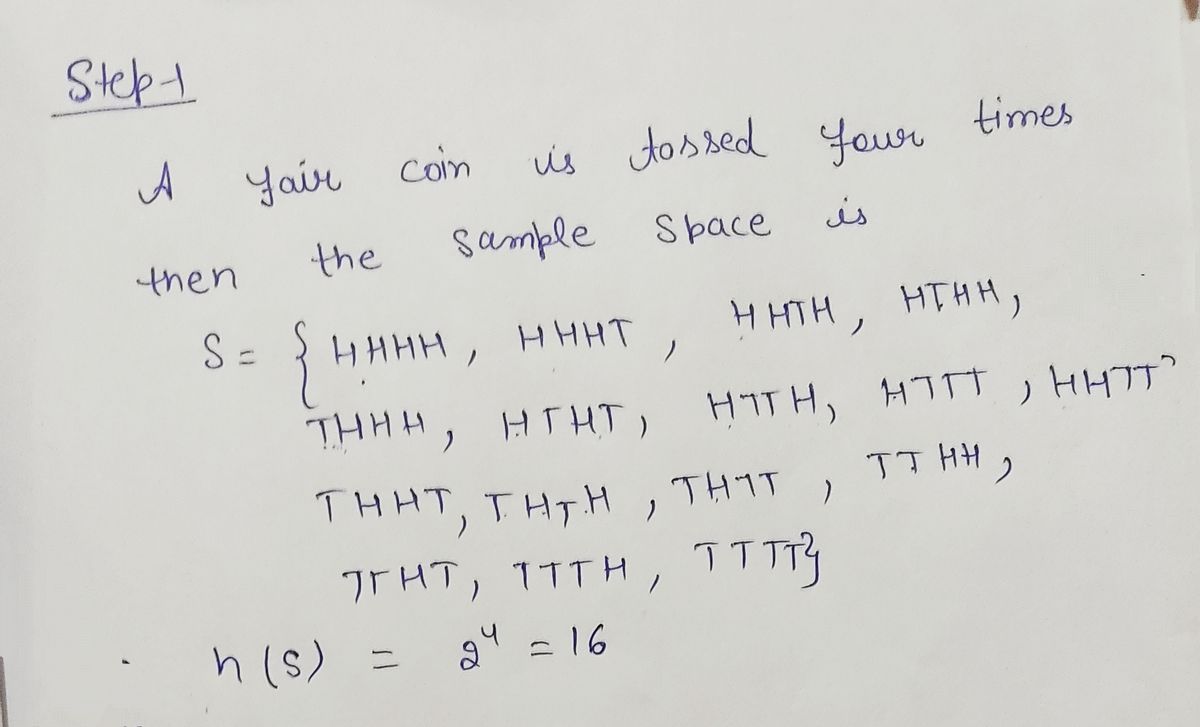 Step-1
A fair coin is tossed four times
then the sample space is
S = { HHHH, HHHT, HHTH, HTHH,
THHH, HTHT, HTTH, HTTT, HHTT,
THHT, THTH, THTT, TTHH,
TTHT, TTTH, TTTT}
n(S) = 2⁴ = 16